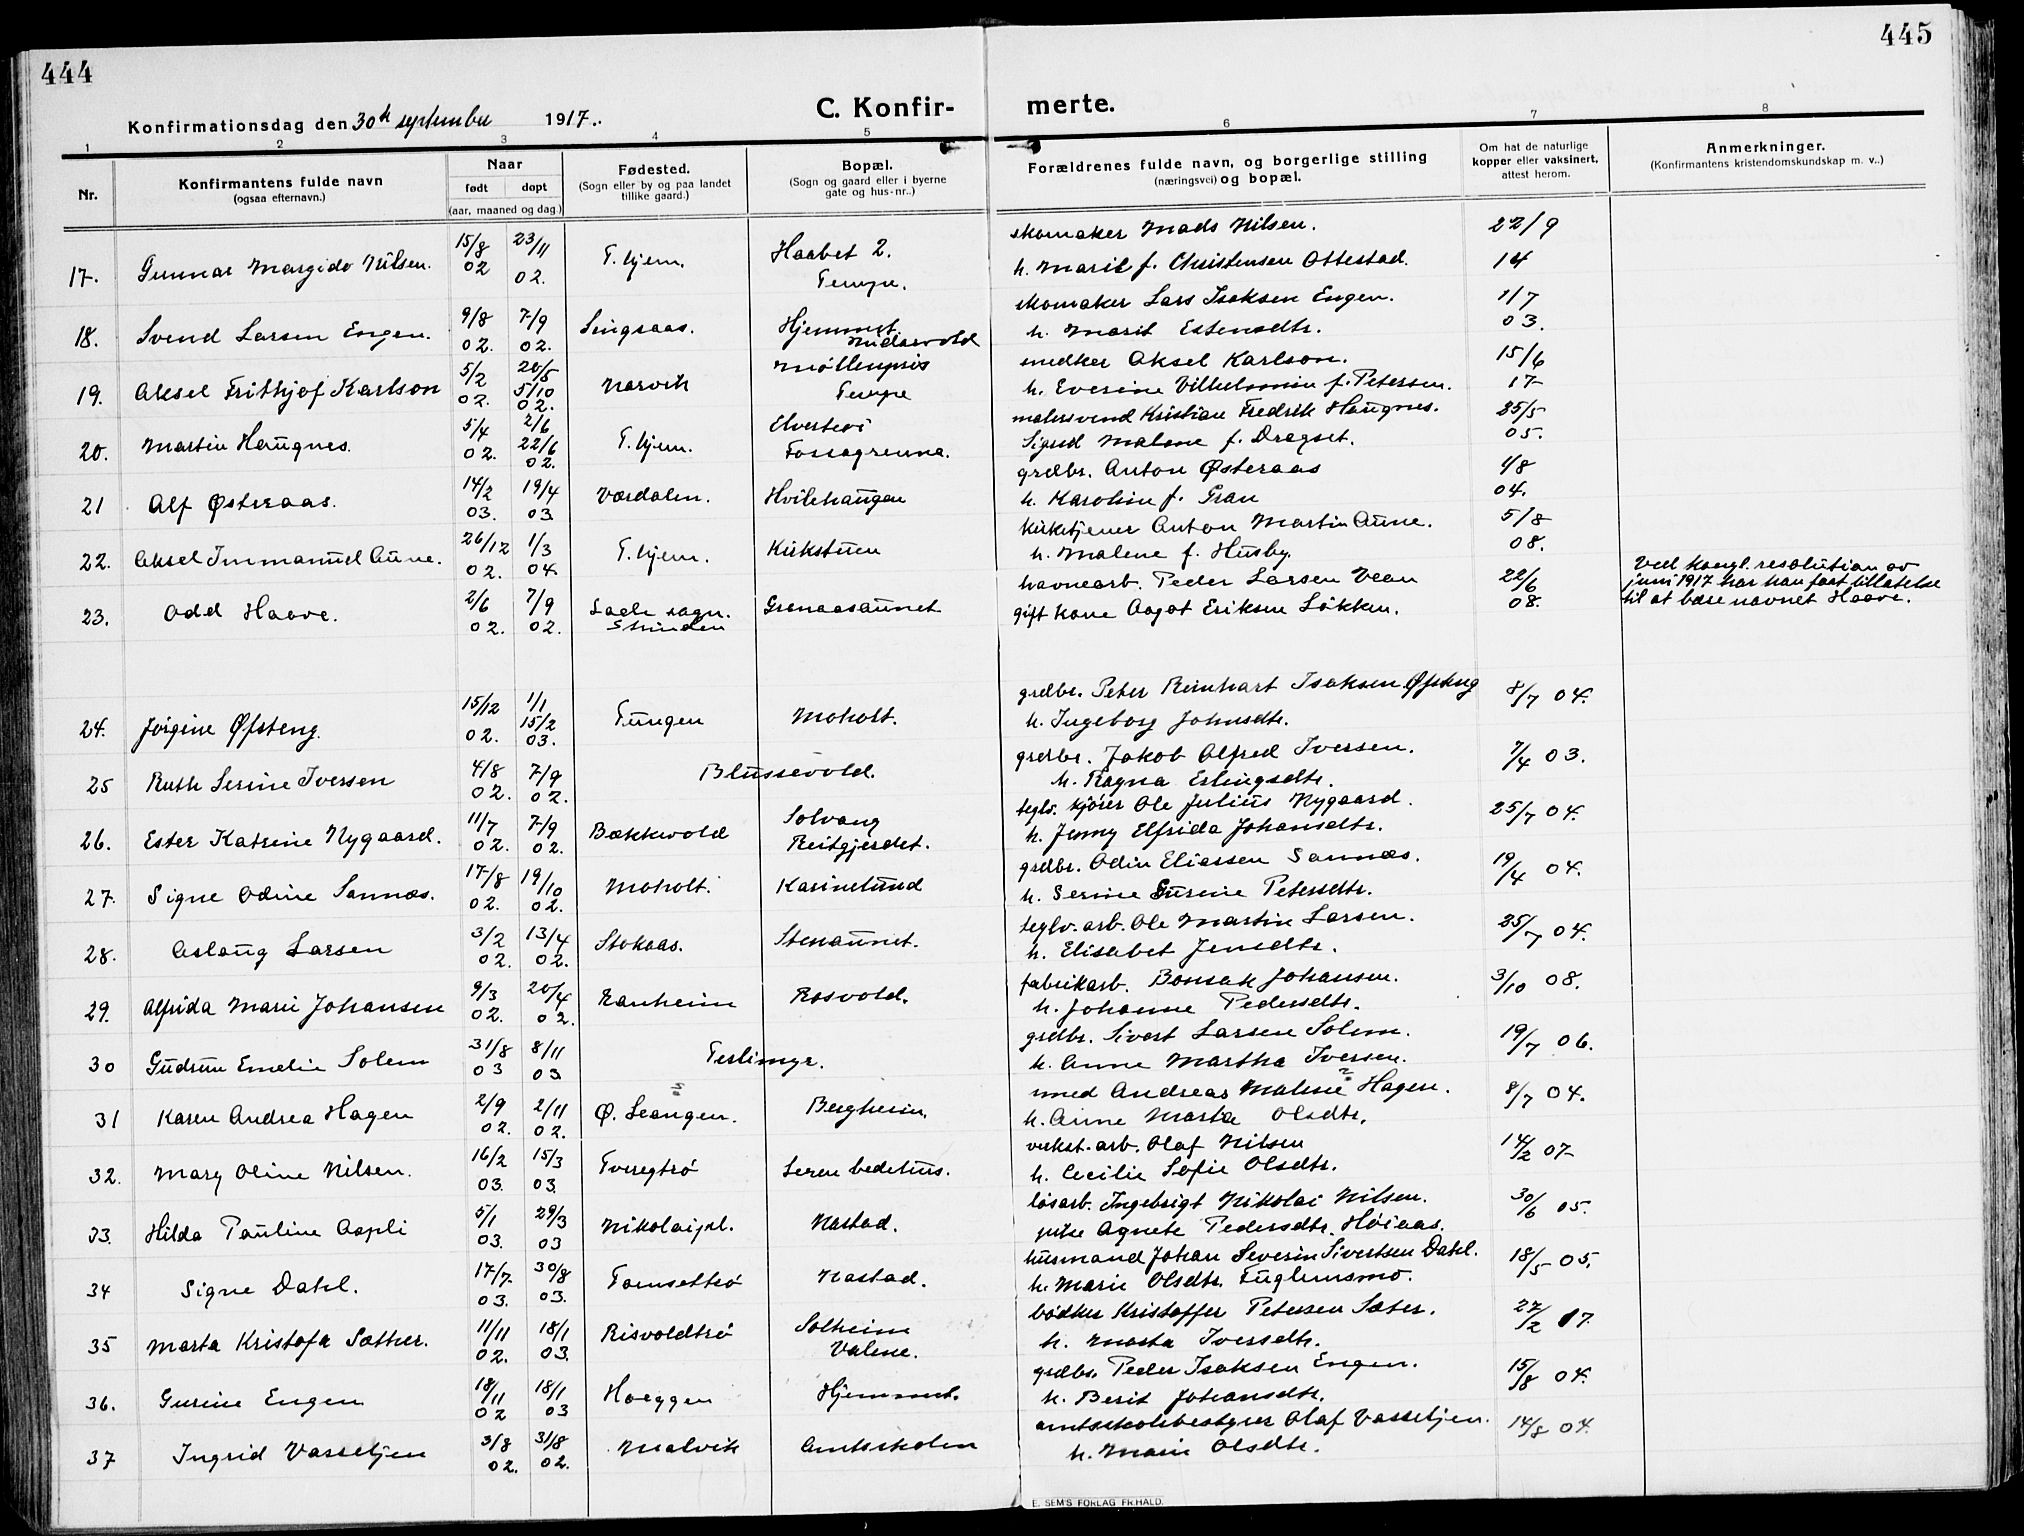 444
445
Konfirmationsdag den 30te september 1917.
C. Konfirmerte.
1 2 3 4 5 6 7 8
Nr.
Konfirmantens fulde navn
(ogsaa efternavn.)
Naar
født døpt
(aar, maaned og dag.)
Fødested.
(Sogn eller by og paa landet
tillike gaard.)
Bopæl.
(Sogn og gaard eller i byerne
gate og hus-nr..)
Forældrenes fulde navn, og borgerlige stilling
(næringsvei) og bopæl.
Om hat de naturlige
kopper eller vaksinert,
attest herom.
Anmerkninger.
(Konfirmantens kristendomskundskap m. v..)
17. Gunnar Margido Nilsen. 15/8 02 23/11 02. T.hjem. Haabet 2. Tempe. skomaker Mads Nilsen. 22/9
h. Marit f. Christensen Ottestad. 14
18. Svend Larsen Engen. 9/8 02. 7/9 02. Singsaas. Hjemmet. Nidarvold skomaker Lars Isaksen Engen. 1/7
h. Marit Estensdtr. 03.
19. Aksel Frithjof Karlson 5/2 02. 20/5 5/10 02. Narvik Møllenpris Tempe snedker Aksel Karlson. 15/6
h. Everine Vilhelmine f. Petersen. 17
20. Martin Haugnes. 5/4 02. 2/6 22/6 02. T.hjem. Elvertevi Fossegrenna. malersvend Kristian Fredrik Haugnes. 25/5
Sigrid Malene f. Dragset. 05.
21 Alf Østeraas. 14/2 03. 19/4 03. Værdalen. Hvilehaugen grdbr. Anton Østeraas 1/8
h. Karoline f. Gran 04.
22. Aksel Immanuel Aune. 26/12 02. 1/3 04 T.hjem. Kirkstuen kirketjener Anton Martin Aune. 5/8
h. Malene f. Husby. 08.
23. Odd Haave. 2/6 02. 7/9 02. Lade sogn. Strinden Granaasaunet havnearb. Peder Larsen Vean 22/6
gift kone Aagot Eriksen Løkken. 08.
Ved kongl. resolution av
juni 1917 har han faat tillatelse
til at bære navnet Haave.
24. Jørgine Øfsteng. 15/12 02. 1/1 15/2 03. Tungen Moholt. grdbr. Peter Reinhart Isaksen Øfsteng 8/7 04.
h. Ingeborg Johnsdtr.
25 Ruth Serine Iversen 4/8 02. 7/9 02. Blussevold. grdbr. Jakob Alfred Iversen. 7/4 03.
h. Ragna Erlingsdtr.
26. Ester Katrine Nygaard. 11/7 02. 7/9 02. Bækkvold Solvang Reitgjerdet. teglv. kjører Ole Julius Nygaard. 25/7 04.
h. Jenny Elfrida Johansdtr.
27. Signe Odine Sannæs. 17/8 02. 19/10 02. Moholt. Karinelund grdbr. Odin Eliassen Sannæs. 19/4 04.
h. Serine Gurine Petersdtr.
28. Aslaug Larsen 3/2 02. 13/4 02. Stokaas. Stenaunet. teglv. arb. Ole Martin Larsen. 25/7 04.
h. Elisabet Jensdtr.
29. Alfrida Marie Johansen 9/3 02. 20/4 02. Ranheim Rosvold. fabrikarb. Bonsak Johansen. 3/10 08.
h. Johanne Pedersdtr.
30 Gudrun Emelie Solem 31/8 03 8/11 03 Teslimyr. grdbr. Sivert Larsen Solem. 19/7 06.
h. Anne Martha Iversen.
31 Karen Andrea Hagen 2/9 02. 2/11 02. Ø. Leangen. Bergheim. smed Andreas Malene Hagen. 8/7 04.
h. Anne Marta Olsdtr.
32. Mary Oline Nilsen. 16/2 03. 15/3 03. Tveregtrø Leren bedehus. verkst. arb. Olaf Nilsen 14/2 07
h. Cecilie Sofie Olsdtr.
33. Hilda Pauline Aspli 5/1 03. 29/3 03 Nikolaipl. Nastad. løsarb. Ingebrigt Nikolai Nilsen. 30/6 05.
pike Agnete Pedersdtr. Høiaas.
34 Signe Dahl. 17/7. 03. 30/8 03. Tomsettrø Nastad. husmand Johan Severin Sivertsen Dahl. 18/5 05.
h. Marie Olsdtr. Fuglemsmo.
35 Marta Kristofa Sæther. 11/11 02. 18/1 03. Risvoldtrø Solheim Valene. bødker Kristoffer Petersen Sæter. 27/2 17.
h. Marta Iversdtr.
36. Gurine Engen 18/11 02 18/1 03 Hoeggen Hjemmet. grdbr. Peder Isaksen Engen. 15/8 04.
h. Berit Johansdtr.
37 Ingrid Vasseljen 3/8 02. 31/8 02. Malvik Amtsskolen amtsskolebestyrer Olaf Vasseljen. 14/8 04.
h. Marie Olsdtr.
E. SEM'S FORLAG FR.HALD.